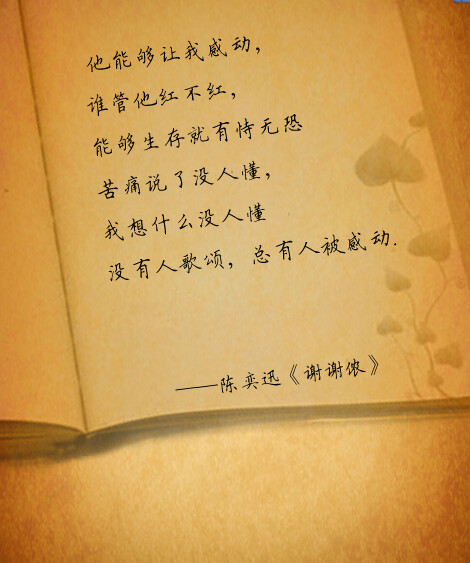 他能够让我感动，
谁管他红不红，
能够生存就有恃无恐
苦痛说了没人懂，
我想什么没人懂
没有人歌颂，总有人被感动.
——陈奕迅《谢谢侬》